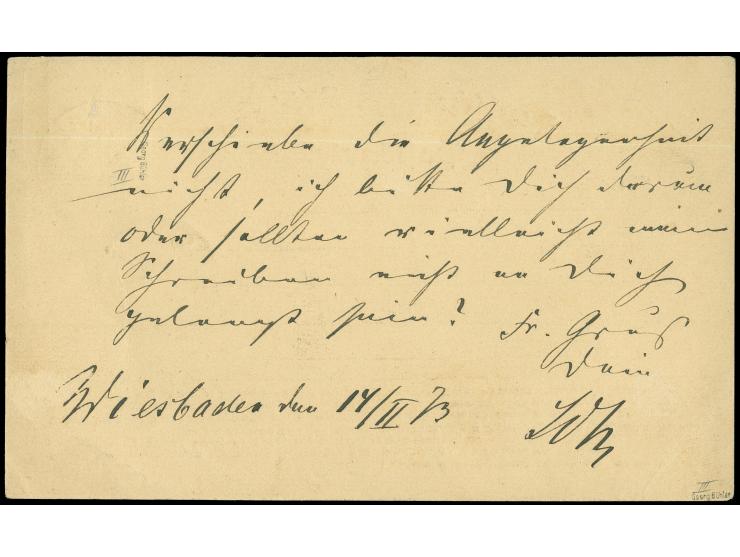 Verschiebe die Angelegenheit
nicht, ich bitte Dich darum
oder sollten vielleicht meine
Schreiben nicht an Dich
gelangt sein? Fr. Gruß
Dein
Wiesbaden den 14/II 73
III
Georg Bühler
III
Georg Bühler